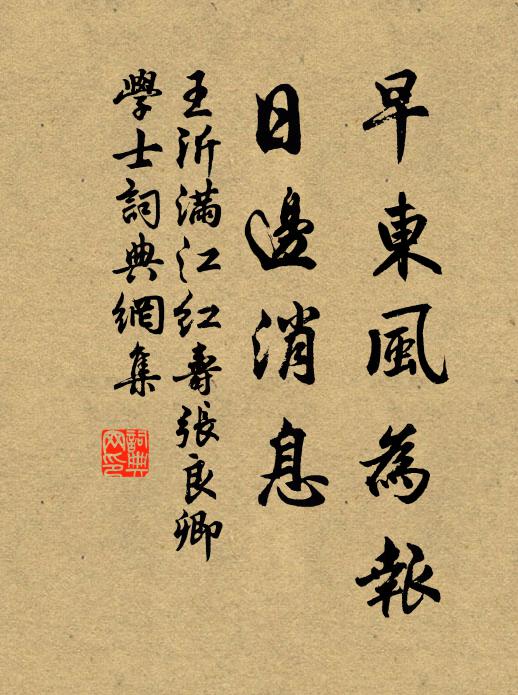 早東風為報
日邊消息
王沂滿江紅壽張良卿
學士詞典網集
詞典網印